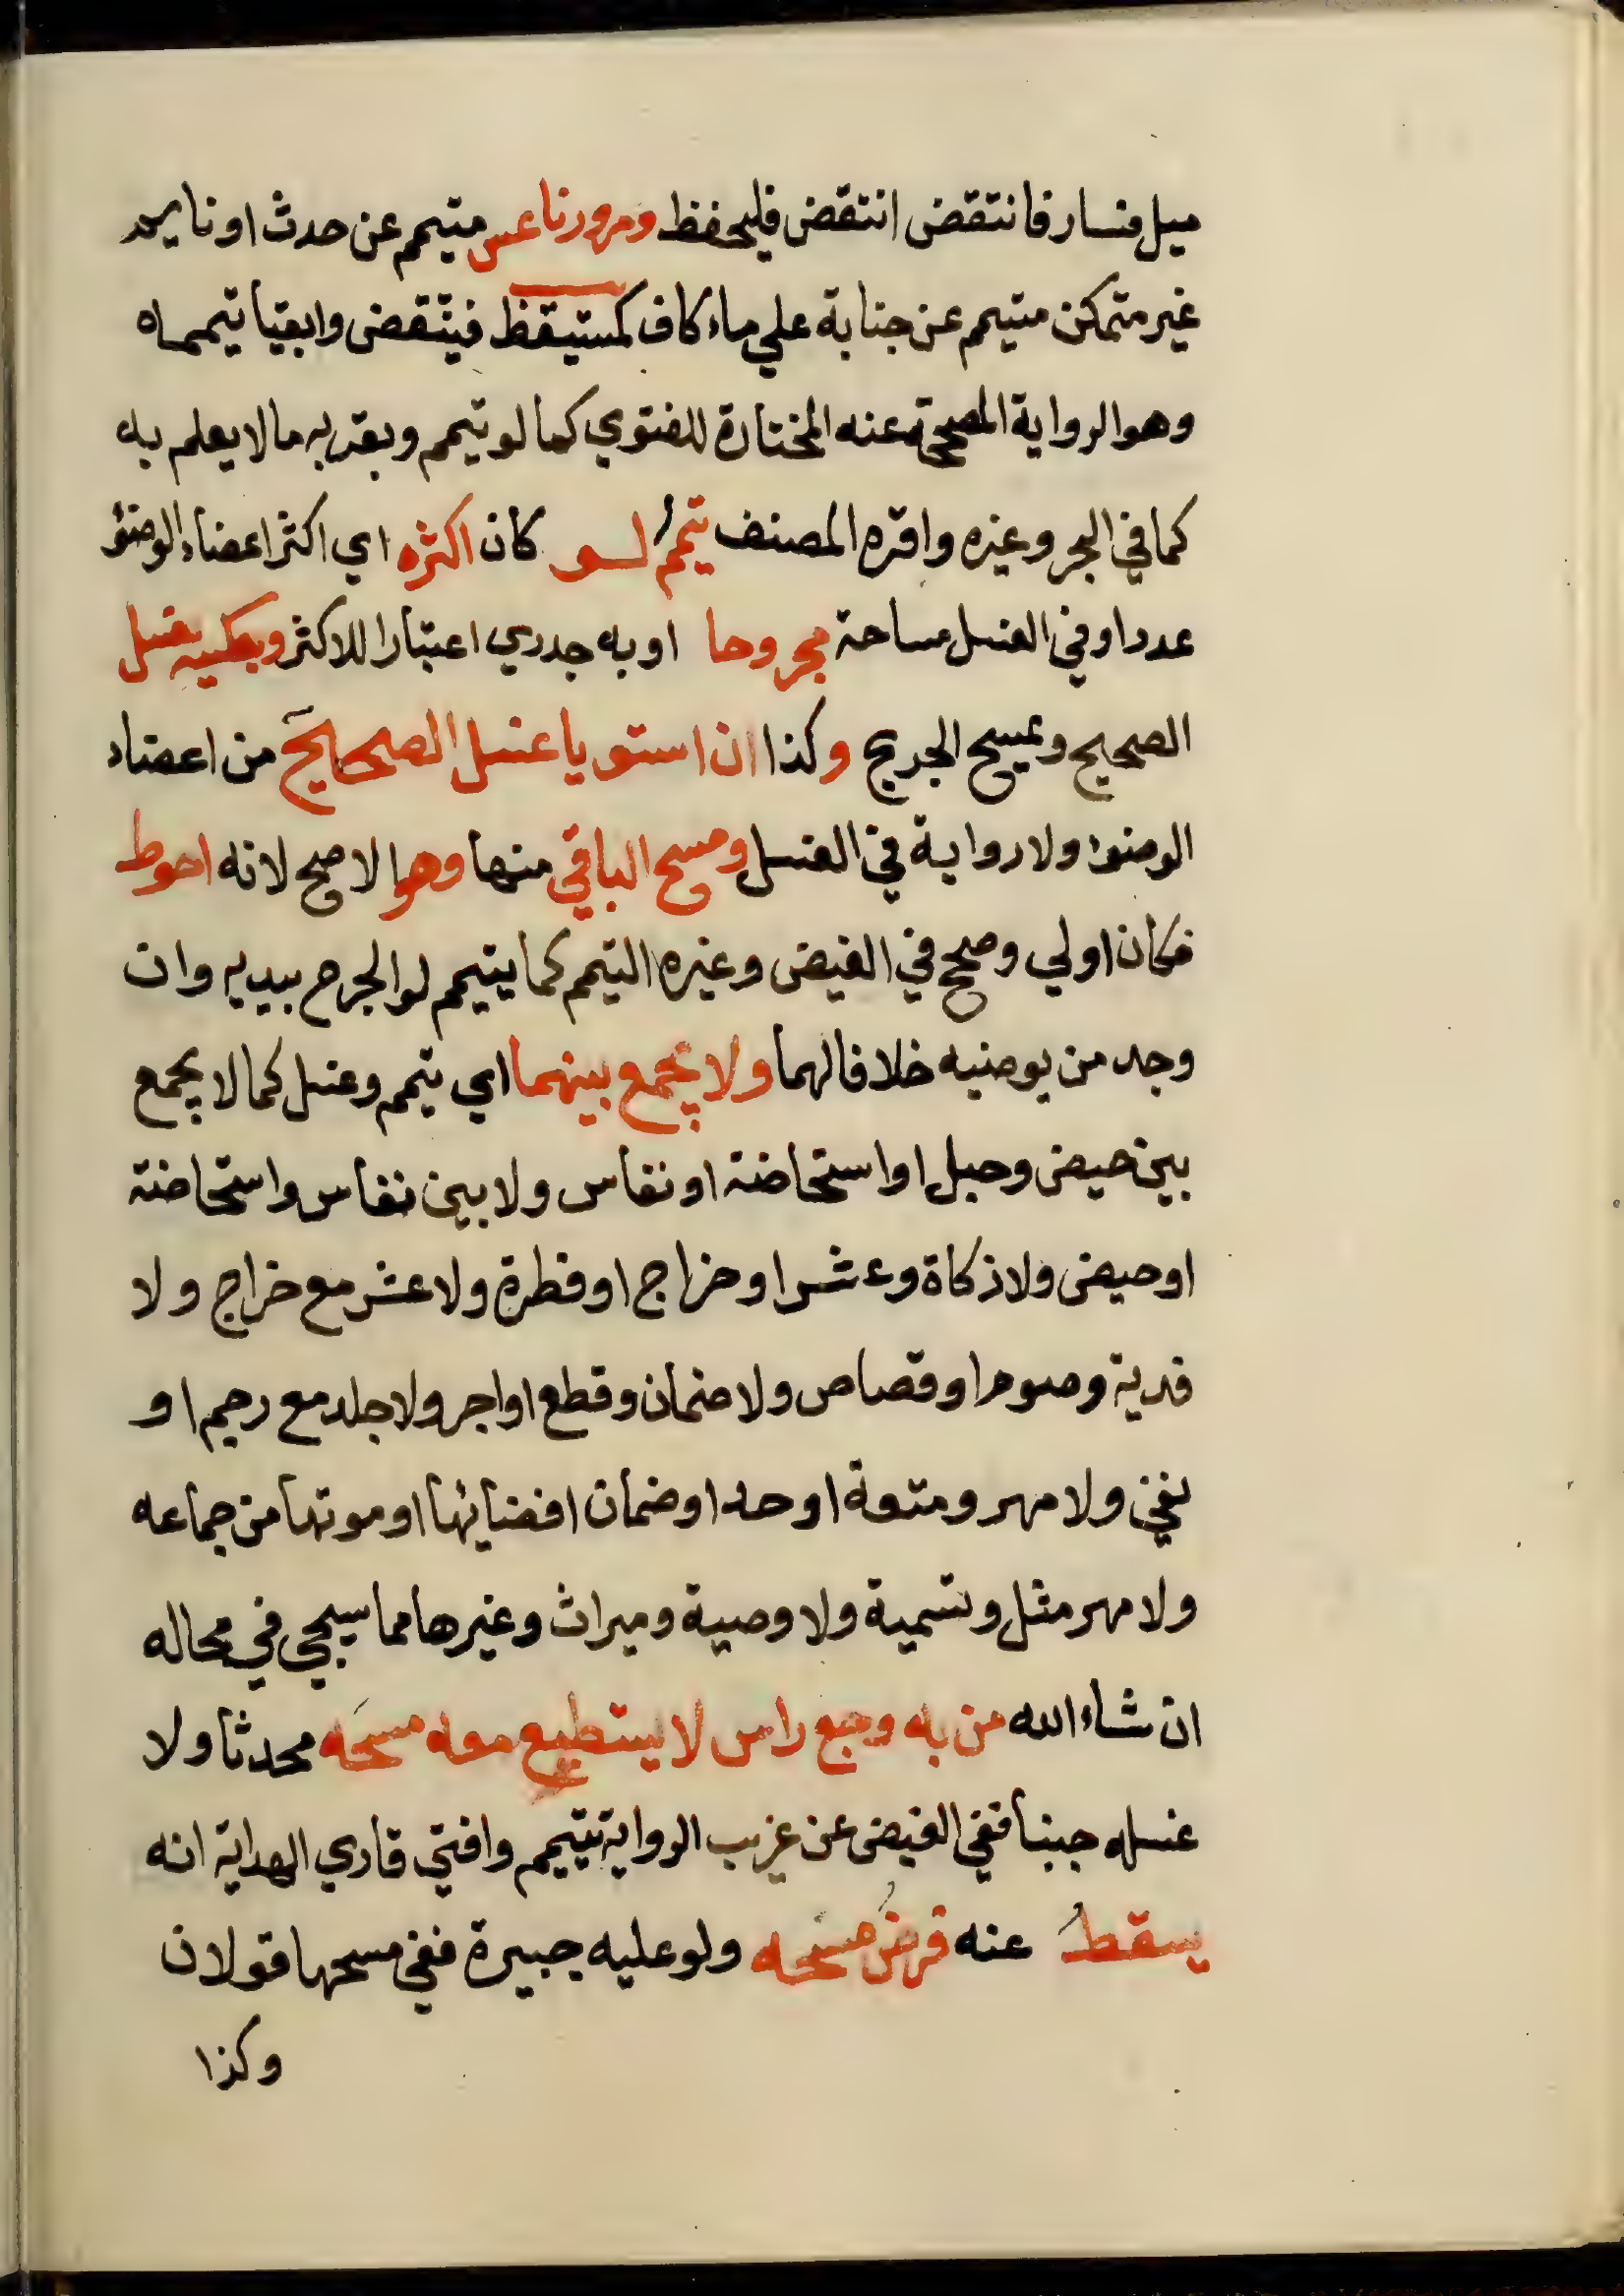 ميل فسار فانتقض انتقض فليحفظ ومرور ناعس متيمم عن حدث او نايم
غير متمكن متيمم عن جنابة علي ماء كاف كمستيقظ فينتقض وابقيا تيممـاه
وهو الرواية المصححة عنه المختارة للفتوي كما لو تيمم وبقربه ما لا يعلم به
كما في البحر وغيره واقره المصنف تيمم لو كان اكثره اي اكثر اعضاء الوضوء
عددا وفي الغسل مساحة مجروحا او به جدري اعتبارا للاكثر وبعكسه يغسل
الصحيح ويمسح الجريح وكذا ان استويا غسل الصحايح من اعضاء
الوضوء ولا رواية في الغسل ومسح الباقي منها وهو الاصح لانه احوط
فكان اولي وصحح في الفيض وغيره التيمم كما يتيمم لو الجرح بيديه وان
وجد من يوضيه خلافا لهما ولا يجمع بينهما اي تيمم وغسل كما لا يجمع
بين حيض وحبل او استحاضة او نفاس ولا بين نفاس واستحاضة
او حيض ولا زكاة وعشر او خراج او فطرة ولا عشر مع خراج ولا
فدية وصوم او قصاص ولا ضمان وقطع او اجر ولا جلد مع رجم او
نفي ولا مهر ومتعة او حد او ضمان افضايها او موتها من جماعه
ولا مهر مثل وتسمية ولا وصية وميراث وغيرها مما سيجي في محاله
ان شاء الله من به وجع راس لا يستطيع معه مسحه محدثا ولا
غسله جنبا ففي الفيض عن غريب الرواية يتيمم وافتي قاري الهداية انه
يسقط عنه فرض مسحه ولو عليه جبيرة ففي مسحها قولان
وكذا